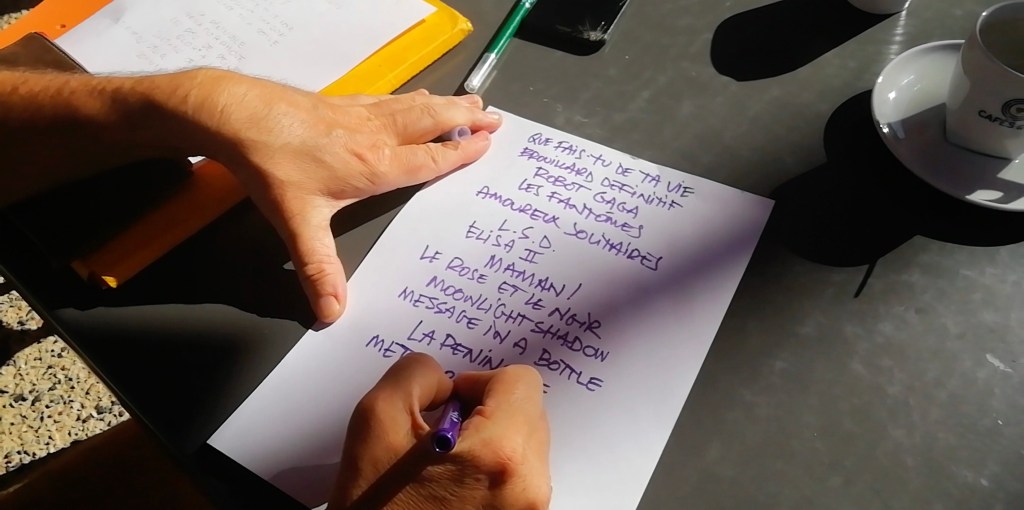 QUE FAIS-TU DE TA VIE
BROUILLARD DEFINITIF
ROBOT GAGA
LES FANTÔMES
AMOUREUX SOLITAIRES
L.S.D.
ELISA II
MAMAN!
LE ROSE ET LE NOIR
MOONLIGHT SHADOW
MESSAGE IN A BOTTLE
LA PENIN
MET
CAFES